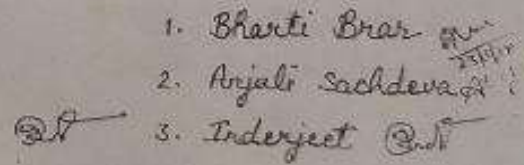 1. Bharti Brar
2. Anjali Sachdeva
3. Inderjeet